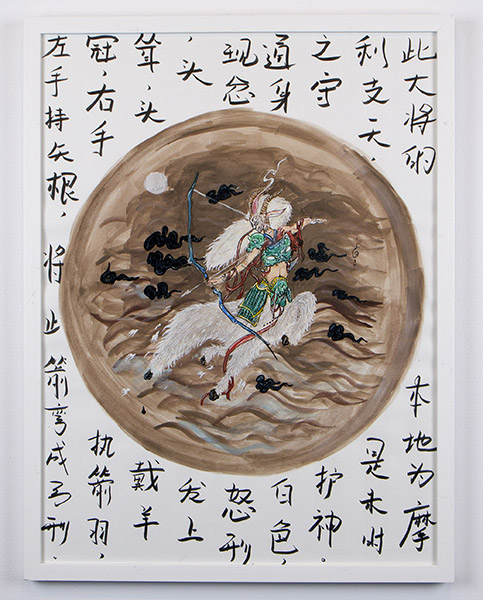 此大将的本地为摩
利支天，是未时
之守护神。
通身白色，
现忿怒形
，头发上
耸，头戴羊
冠，右手执箭羽，
左手持矢根，将止箭弯成弓形.